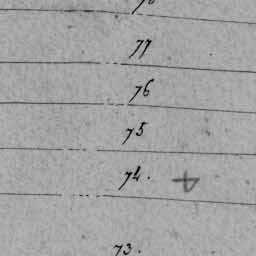 77
76
75
74. 4
73.